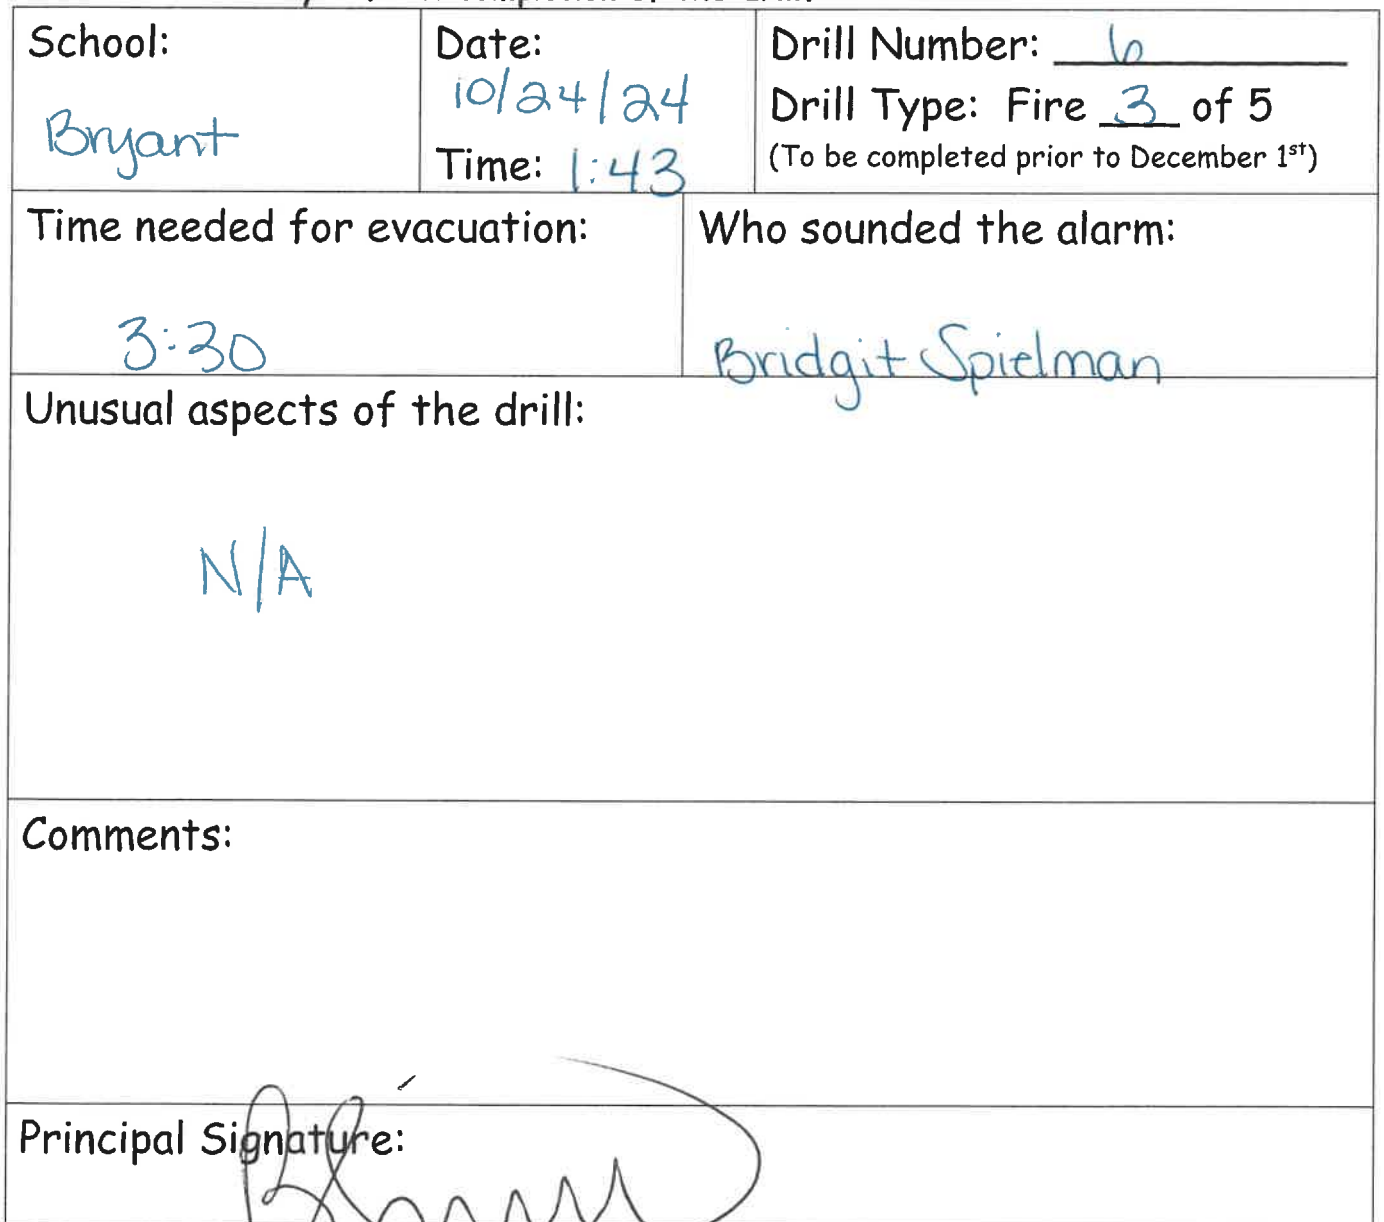 School:
Bryant
Date:
10/24/24
Time: 1:43
Drill Number: 6
Drill Type: Fire 3 of 5
(To be completed prior to December 1st)
Time needed for evacuation:
3:30
Who sounded the alarm:
Bridgit Spielman
Unusual aspects of the drill:
N/A
Comments:
Principal Signature: